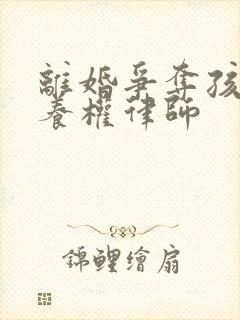 離婚爭奪孩
養權律師
錦鯉繪扇